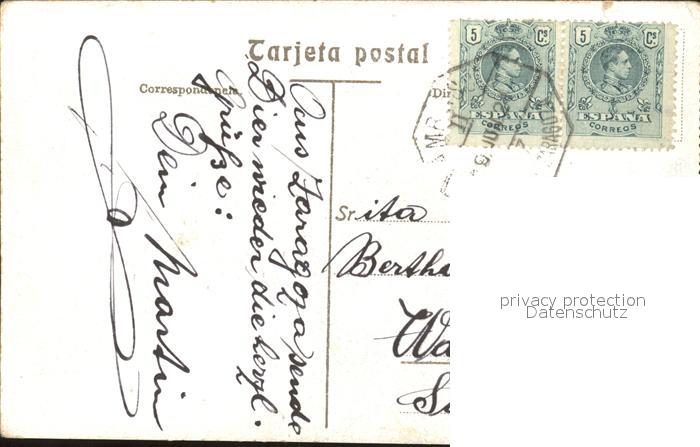 Tarjeta postal
Correspondencia
5 Cs
ESPAÑA
CORREOS
5 Cs
ESPAÑA
CORREOS
Aus Zaragoza sende
Dir wieder die herzl.
Grüße:
Dein Martin
Sr.ita
Bertha
privacy protection
Datenschutz